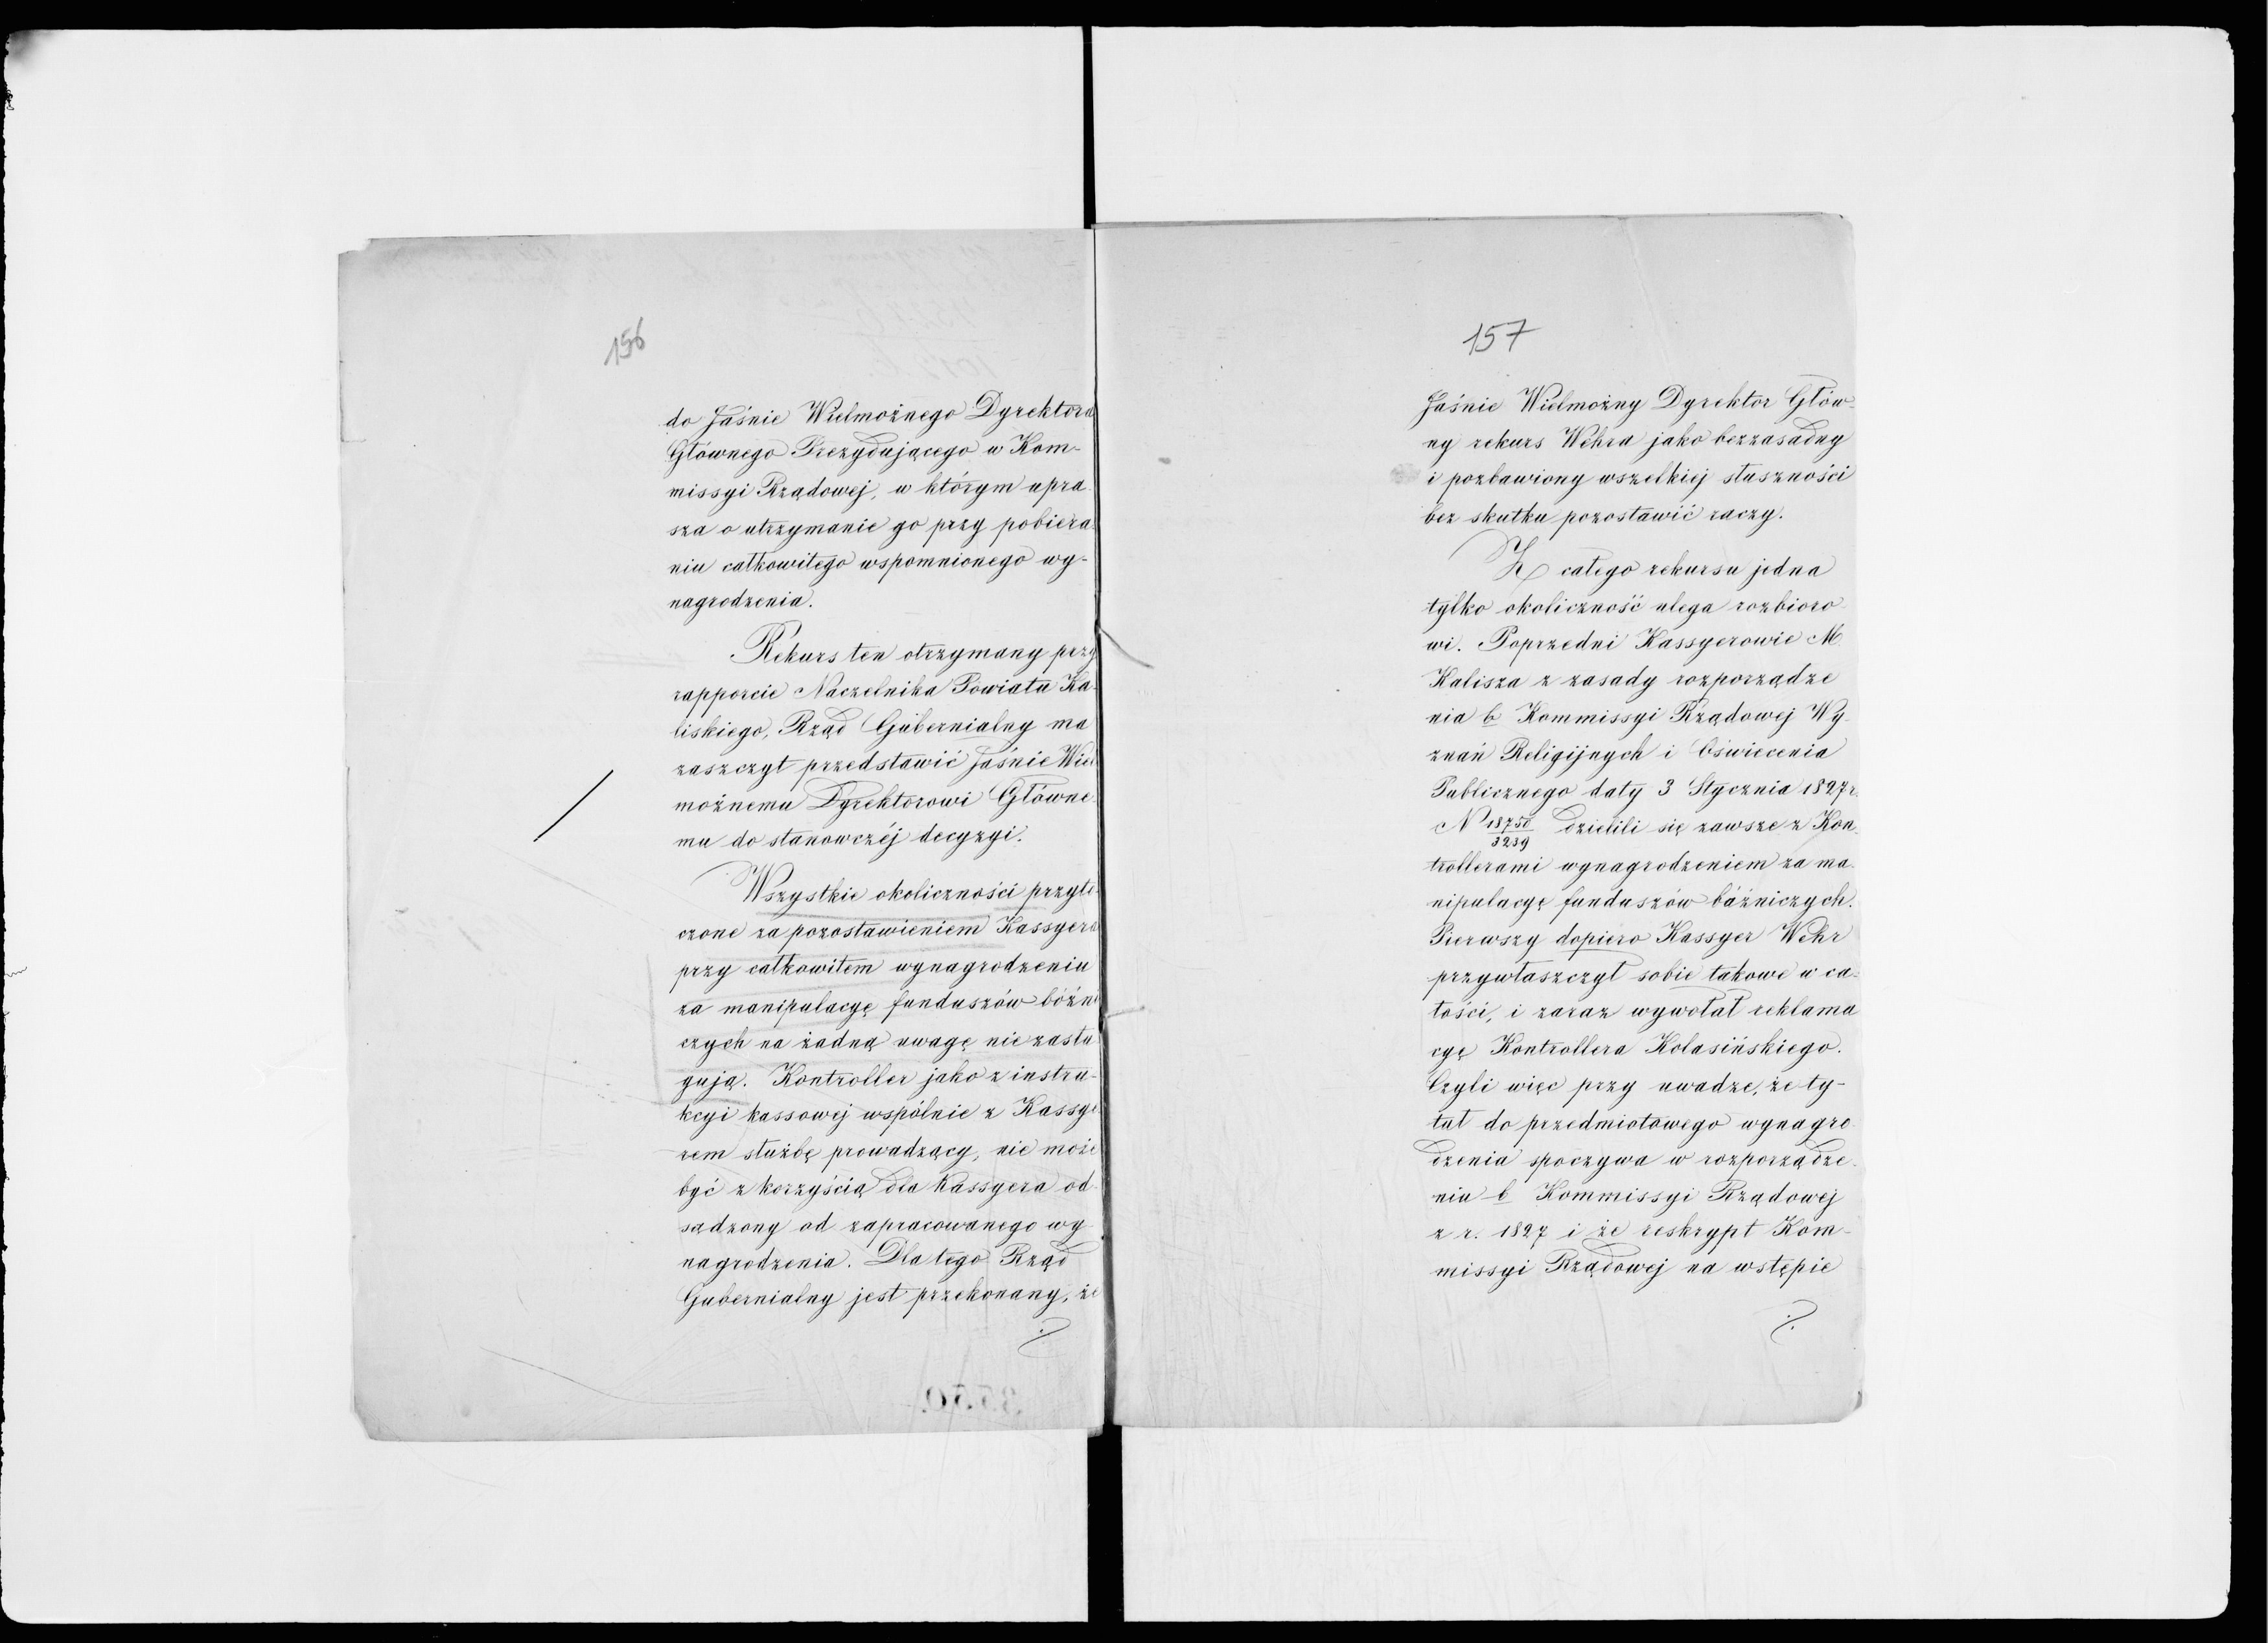 156
do Jaśnie Wielmożnego Dyrektora
Głównego Prezydującego w Kom-
missyi Rządowej, w którym upra
sza o utrzymanie go przy pobiera
niu całkowitego wspomnionego wy-
nagrodzenia.
Rekurs ten otrzymany przy
rapporcie Naczelnika Powiatu Ka-
liskiego, Rząd Gubernialny ma
zaszczyt przedstawić Jaśnie Wiel
możnemu Dyrektorowi Główne-
mu do stanowczéj decyzyi.
Wszystkie okoliczności przyto
czone za pozostawieniem Kassyera
przy całkowitem wynagrodzeniu
za manipulacyę funduszów bóżni
czych na żadną uwagę nie zasłu
gują. Kontroller jako z instru-
kcyi kassowej wspólnie z Kassye
rem służbę prowadzący, nie może
być z korzyścią dla Kassyera od
sądzony od zapracowanego wy
nagrodzenia. Dla tego Rząd
Gubernialny jest przekonany, że
./.
3550
157
Jaśnie Wielmożny Dyrektor Głów-
ny rekurs Wehra jako bezzasadny
i pozbawiony wszelkiej słuszności
bez skutku pozostawić raczy.
Z całego rekursu jedna
tylko okoliczność ulega rozbioro
wi. Poprzedni Kassyerowie M.
Kalisza z zasady rozporządze
nia b Kommissyi Rządowej Wy-
znań Religijnych i Oświecenia
Publicznego daty 3 Stycznia 1827 r.
N 18750/3239 dzielili się zawsze z Kon-
trollerami wynagrodzeniem za ma
nipulacyę funduszów bóżniczych.
Pierwszy dopiero Kassyer Wehr
przywłaszczył sobie takowe w ca-
łości, i zaraz wywołał reklama
cyę Kontrollera Kolasińskiego.
Czyli więc przy uwadze, że ty-
tuł do przedmiotowego wynagro
dzenia spoczywa w rozporządze-
niu b Kommissyi Rządowej
z r. 1827 i że reskrypt Kom-
missyi Rządowej na wstępie
./.